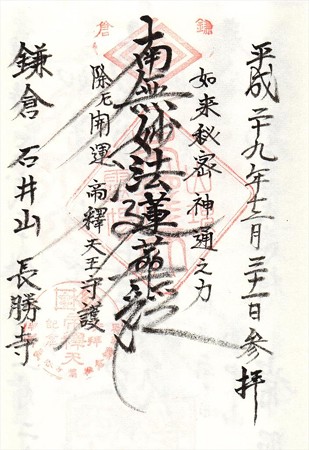 平成二十九年十二月三十一日参拝
如来秘密神通之力
南無妙法蓮華経
除厄開運帝釈天王守護
鎌倉 石井山 長勝寺
鎌倉